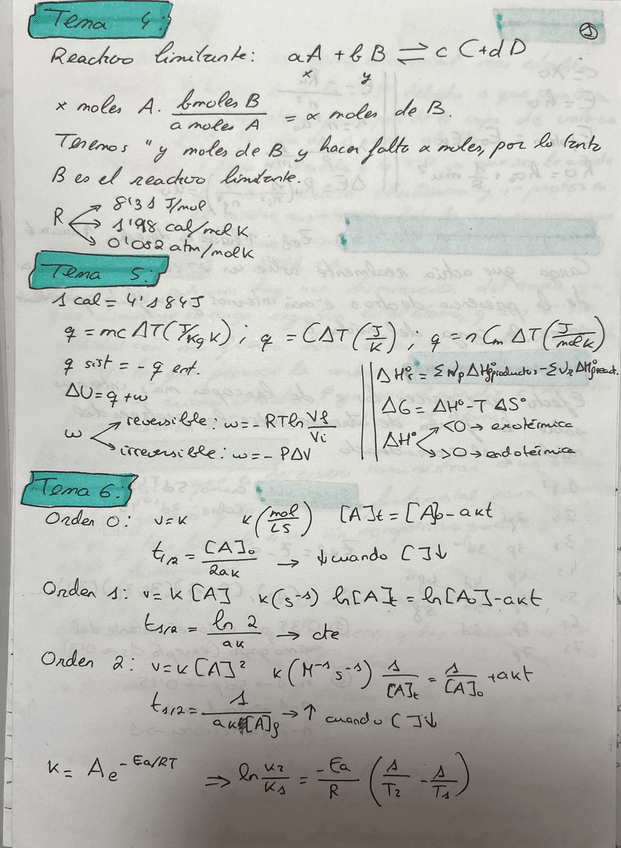 Tema 4:
①
Reactivo limitante: aA + bB ⇌ cC + dD
x y
x moles A. b moles B / a moles A = α moles de B.
Tenemos "y moles de B y hacen falta α moles, por lo tanto
B es el reactivo limitante.
R → 8'31 J/mol
→ 1'98 cal/mol K
→ 0'082 atm/mol K
Tema 5:
1 cal = 4'184 J
q = mcΔT (J/Kg K) ; q = CΔT (J/K) ; q = n Cm ΔT (J/mol K)
q sist = - q ent.
ΔU = q + w
w → reversible: w = - RT ln Vf/Vi
→ irreversible: w = - PΔV
ΔH°r = Σ νp ΔH°productos - Σ νr ΔH°react.
ΔG = ΔH° - T ΔS°
ΔH° → <0 → exotérmica
→ >0 → endotérmica
Tema 6:
Orden 0: v = k k (mol/LS) [A]t = [A]o - akt
t1/2 = [A]o / 2ak → ↓ cuando [ ]↓
Orden 1: v = k [A] k (s⁻¹) ln[A]t = ln[Ao] - akt
t1/2 = ln 2 / ak → cte
Orden 2: v = k [A]² k (M⁻¹ s⁻¹) 1/[A]t = 1/[A]o + akt
t1/2 = 1 / ak[A]o → ↑ cuando [ ]↓
k = A e^-Ea/RT ⇒ ln k2/k1 = -Ea/R (1/T2 - 1/T1)